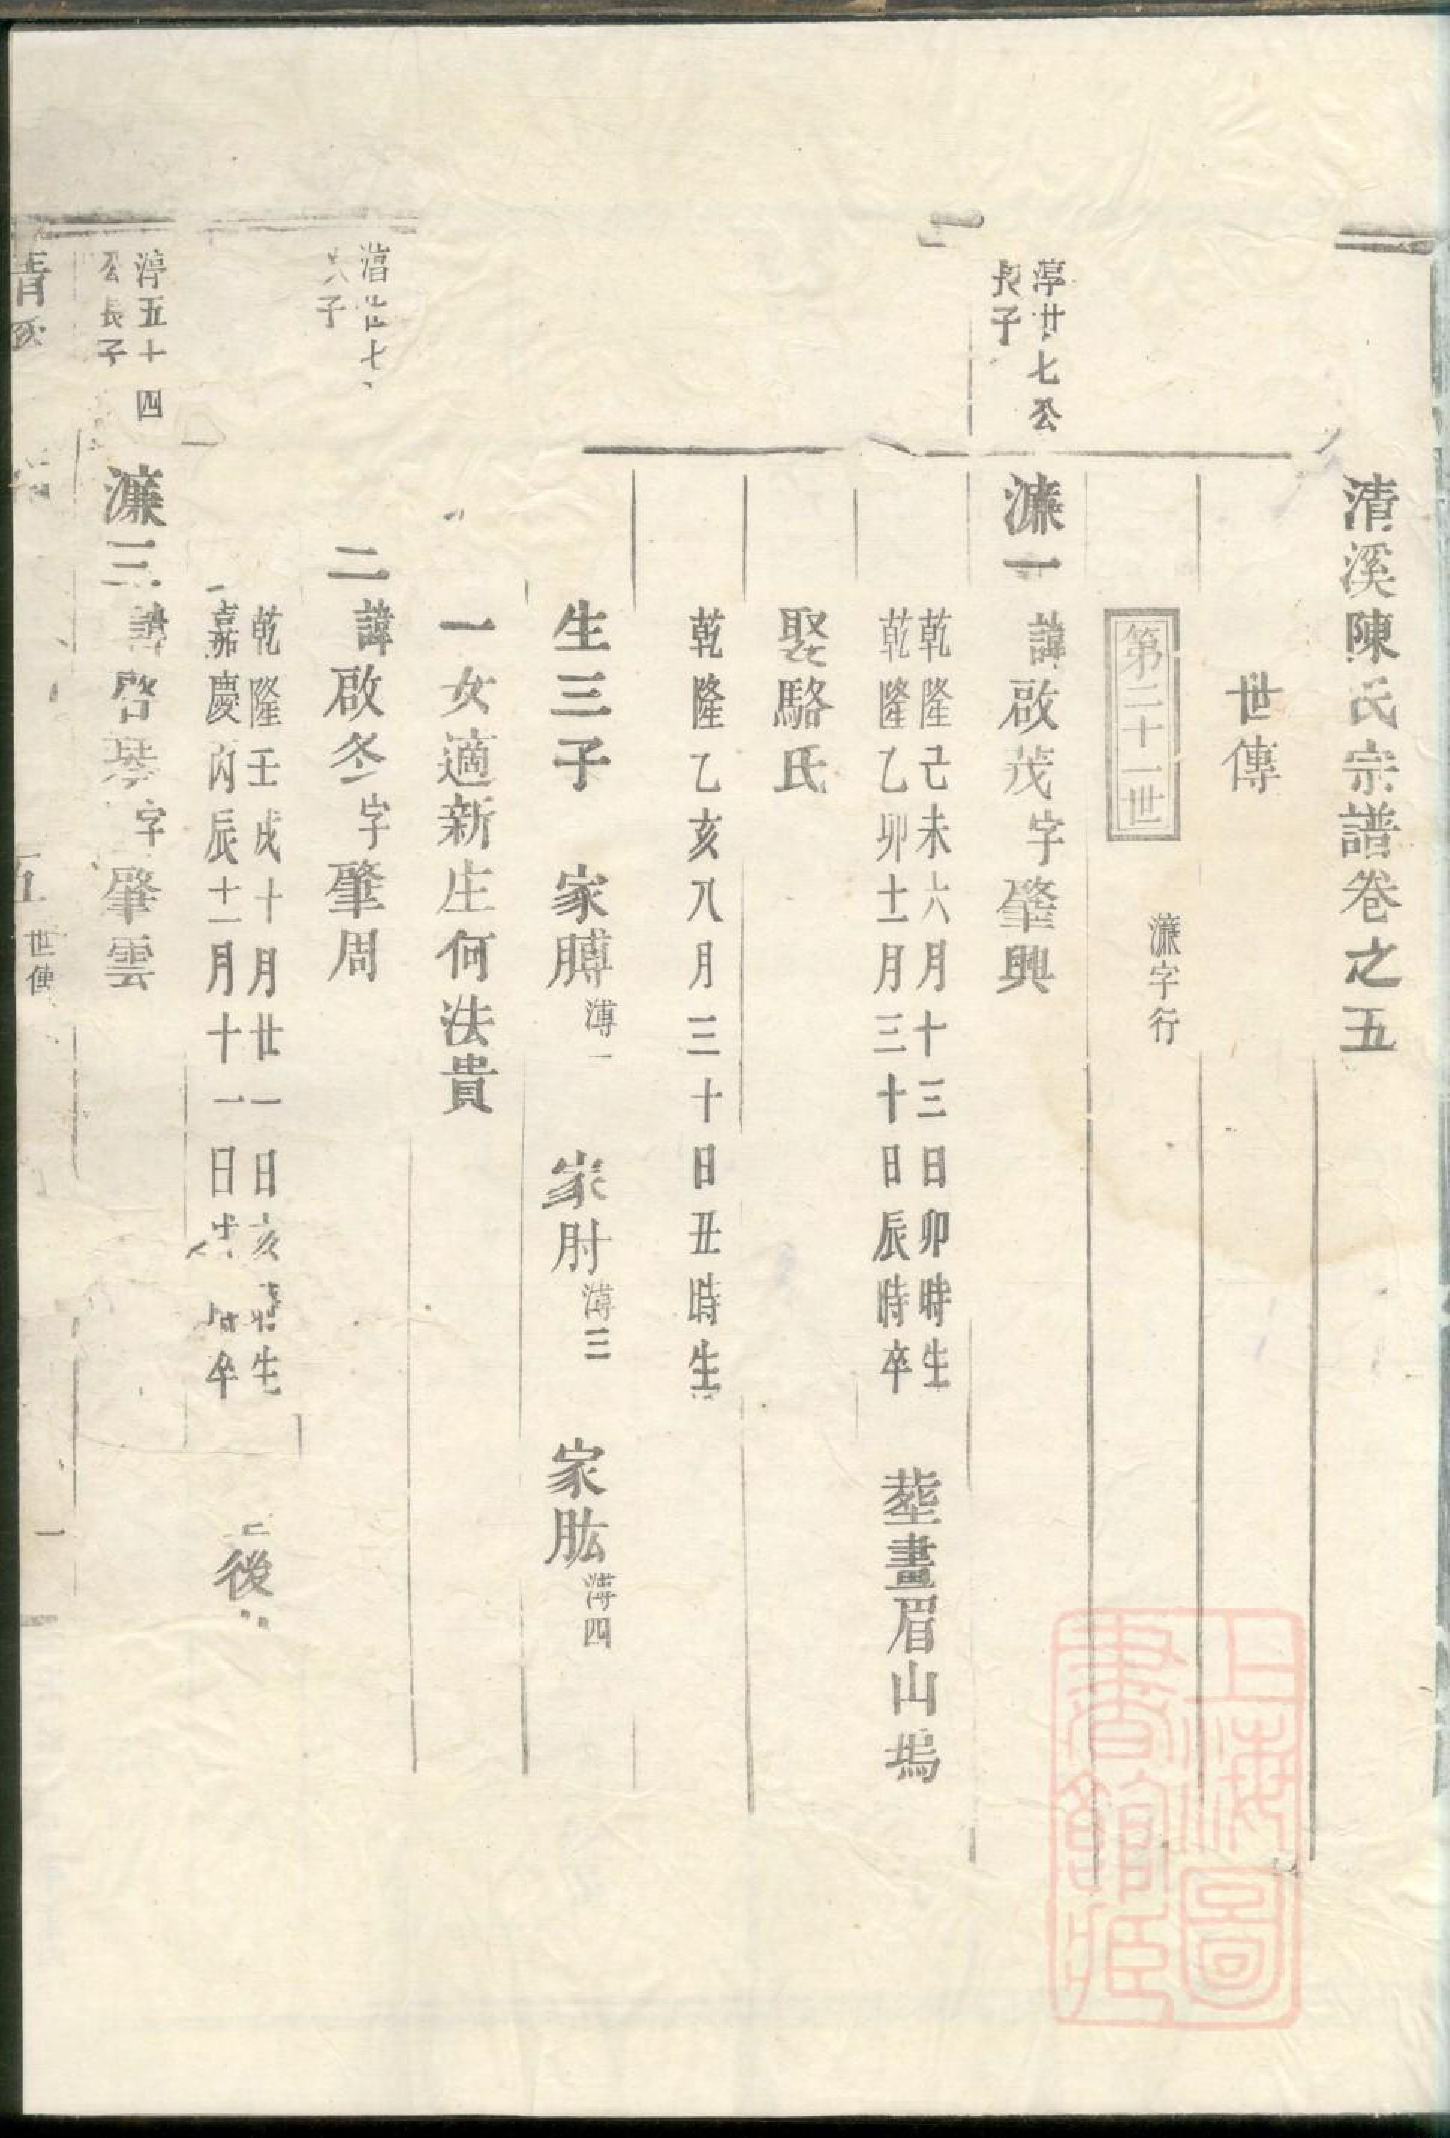 清溪陳氏宗譜卷之五
世傳
第二十一世
濂字行
淳廿七公
長子
濂一諱啟茂字肇興
乾隆己未六月十三日卯時生
乾隆乙卯十二月三十日辰時卒
塟畫眉山塢
娶駱氏
乾隆乙亥八月三十日丑時生
生三子 家膊溥一 家肘溥三 家肱溥四
一女適新庄何法貴
子
二諱啟冬字肇周
乾隆壬戌十月廿一日亥時生
嘉慶丙辰十二月十一日 時卒
後
淳五十四
公長子
濂三諱啓 字肇雲
世傳
一
上海圖書館藏